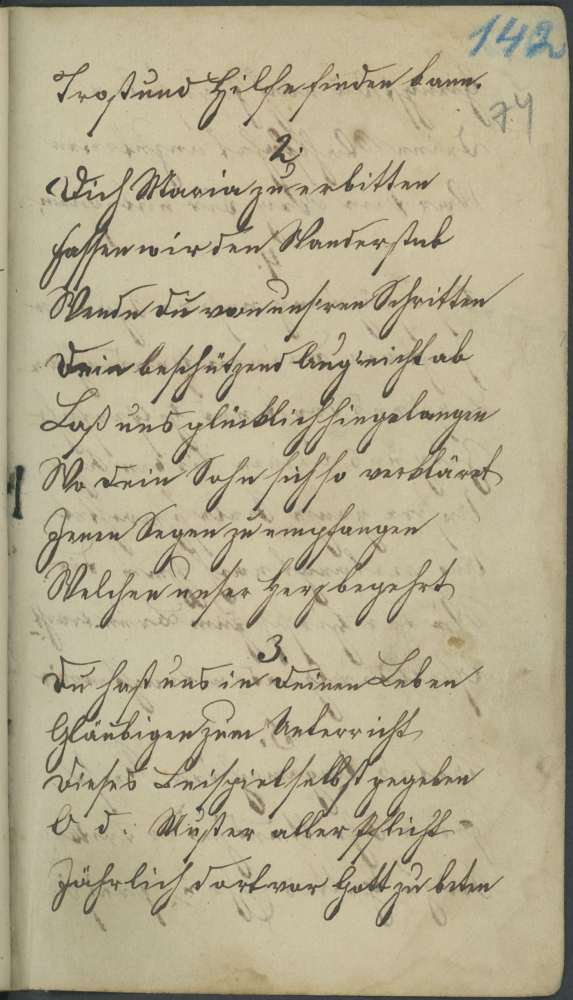 142
74
Trost und Hilfe finden kann.
2.
Dich Maria zu erbitten
fassen wir den Wanderstab
Wende du von uns'ren Schritten
Dein beschützend Aug' nicht ab
Laß uns glücklich hingelangen
Wo dein Sohn sich so verkläret
Jenen Segen zu empfangen
Welchen unser Herz begehrt
3.
Du hast uns in deinen Leben
Gläubigen zum Unterricht
Dieses Beispiel selbst gegeben
O d. Muster aller Pflicht
Jährlich dort vor Gott zu beten